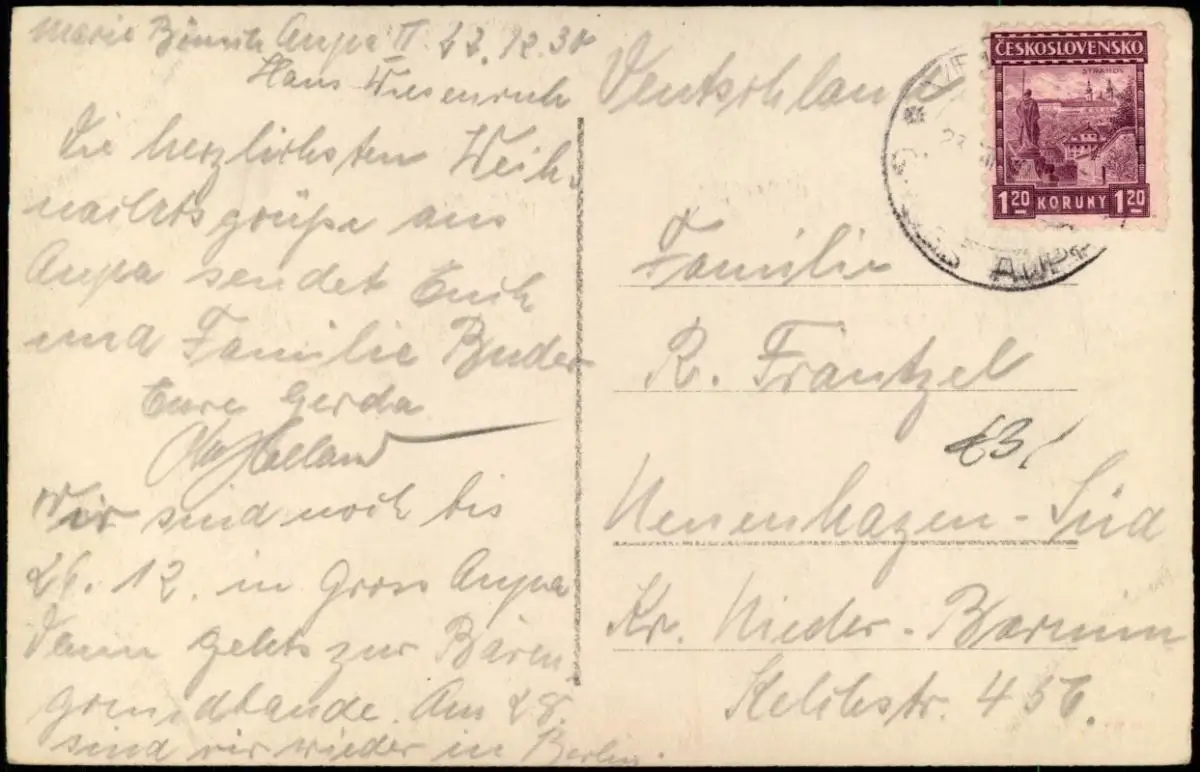 Marie Aupa II 23.12.30
Hans
Die herzlichsten Weih-
nachtsgrüße aus
Aupa sendet Euch
und Familie Buder
Eure Gerda
Wir sind noch bis
26.12. in Gross Aupa
Dann gehts zur Bären
grundbaude. Am 28.
sind wir wieder in Berlin.
Deutschland
ČESKOSLOVENSKO
STRAHOV
1 20 KORUNY 1 20
AUPA
Familie
R. Frantzel
Neuenhagen-Süd
Kr. Nieder-Barnim
456.